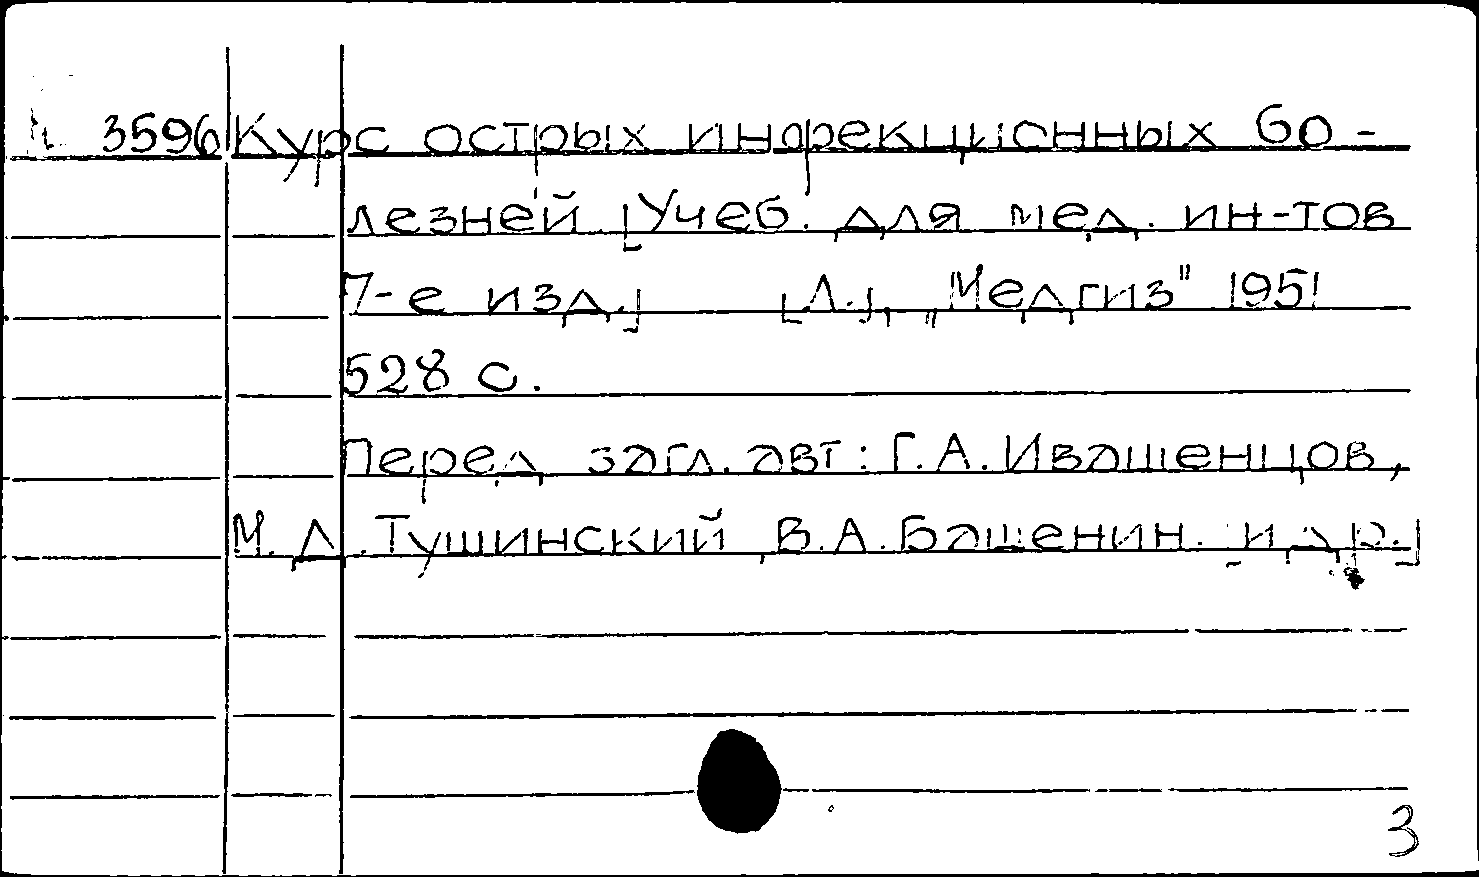 3596 Курс острых инфекционных бо-
лезней [Учеб. для мед. ин-тов
7-е изд.] [Л.], „Медгиз" 1951
528 с.
Перед загл. авт: Г.А. Ивашенцов,
М.Д. Тушинский, В.А. Башенин. [и др.]
3